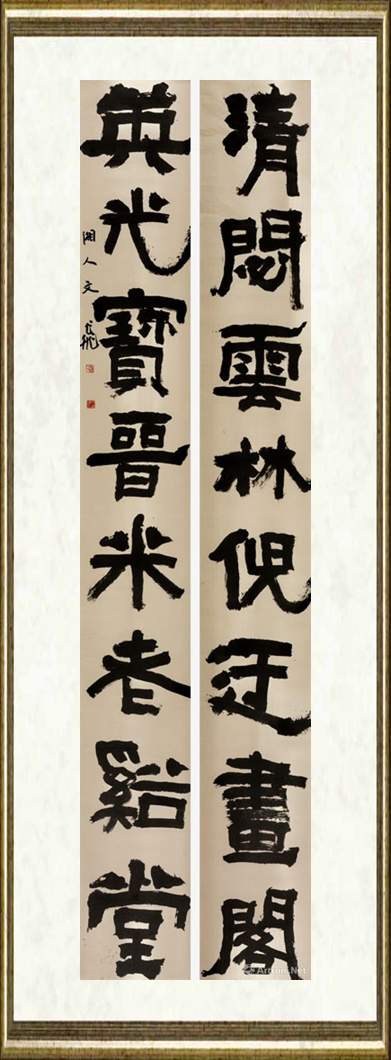 清閟雲林倪迂畫閣
英光寶晉米老谿堂
湘人文
Artron.Net